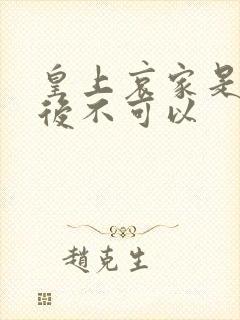 皇上哀家是
後不可以
趙克生